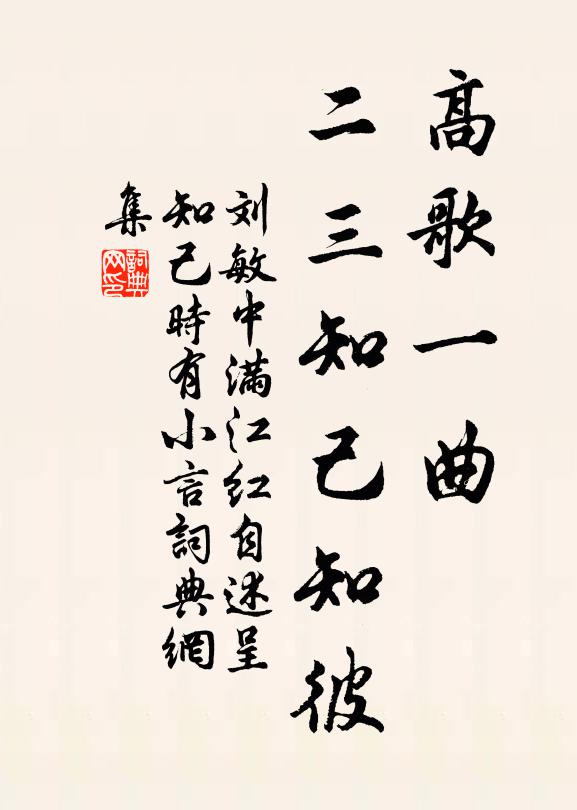 高歌一曲
二三知己知彼
刘敏中满江红自述呈
知己時有小言詞典網
集
詞典
网印